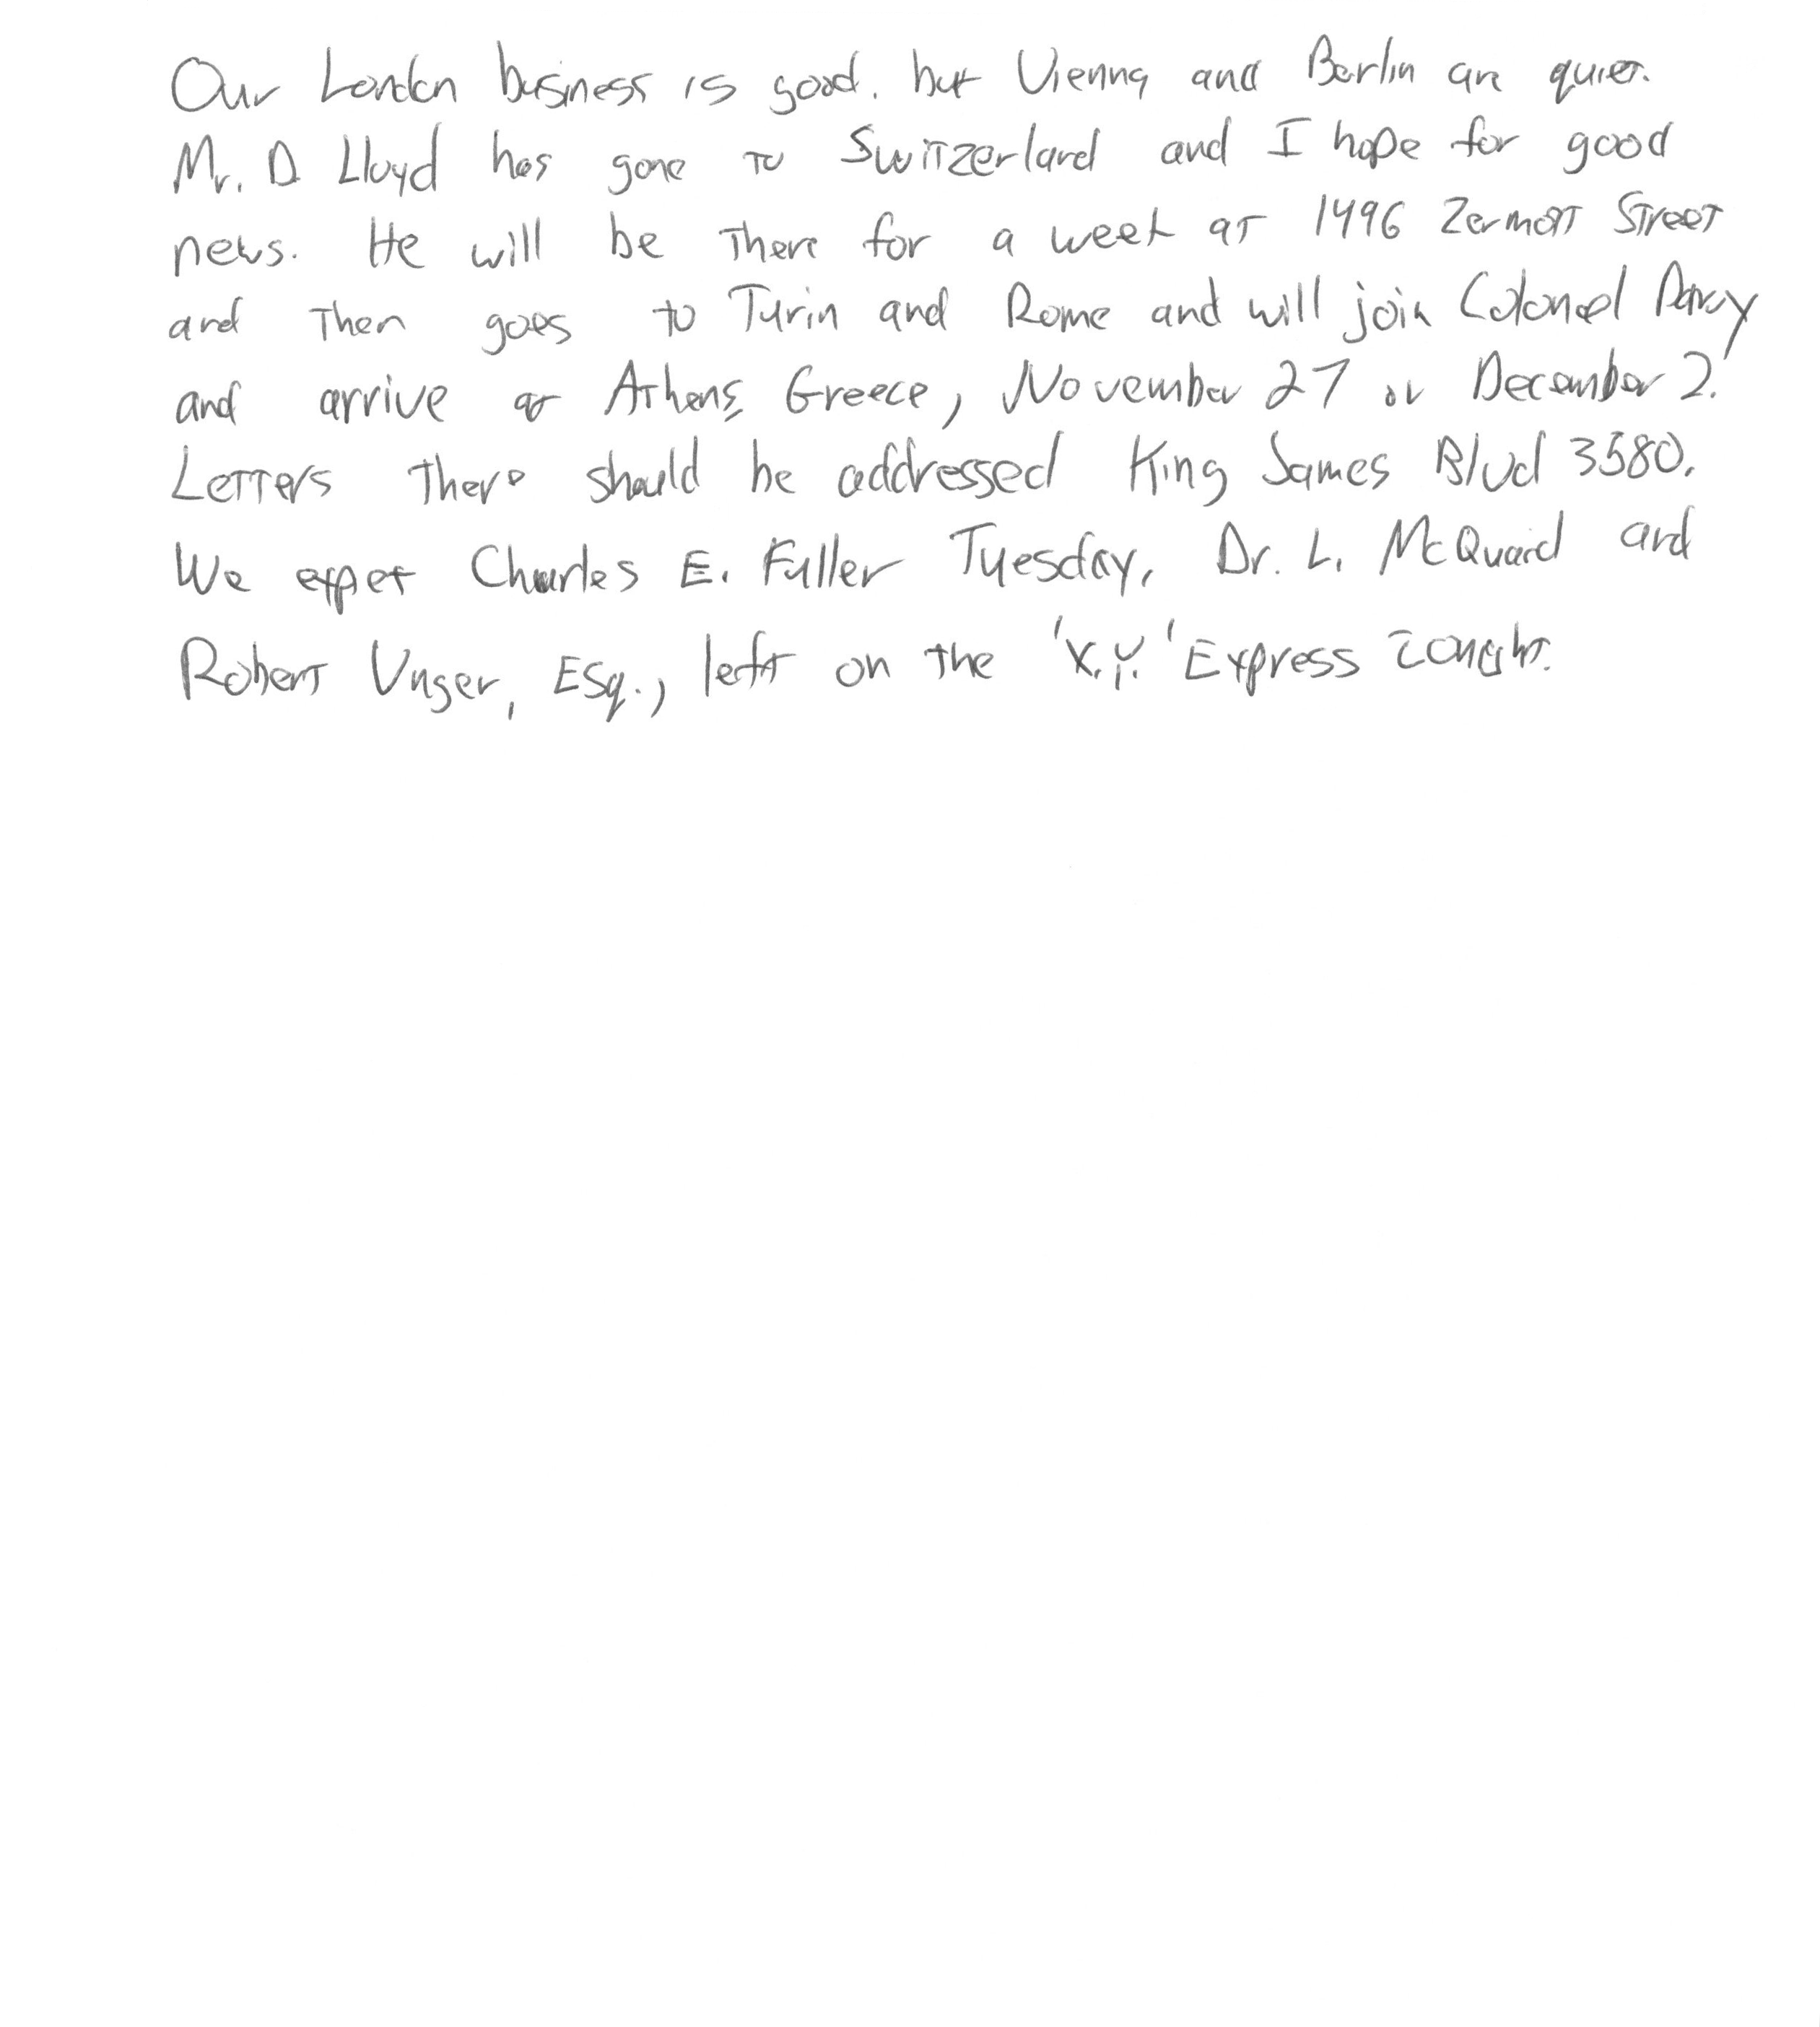 Our London business is good, but Vienna and Berlin are quiet.
Mr. D Lloyd has gone to Switzerland and I hope for good
news. He will be there for a week at 1496 Zermott Street
and then goes to Turin and Rome and will join Colonel Parry
and arrive at Athens, Greece, November 27 or December 2.
Letters there should be addressed King James Blvd 3580.
We expet Charles E. Fuller Tuesday. Dr. L. McQuaid and
Robert Unger, Esq., left on the 'X.Y.' Express tonight.